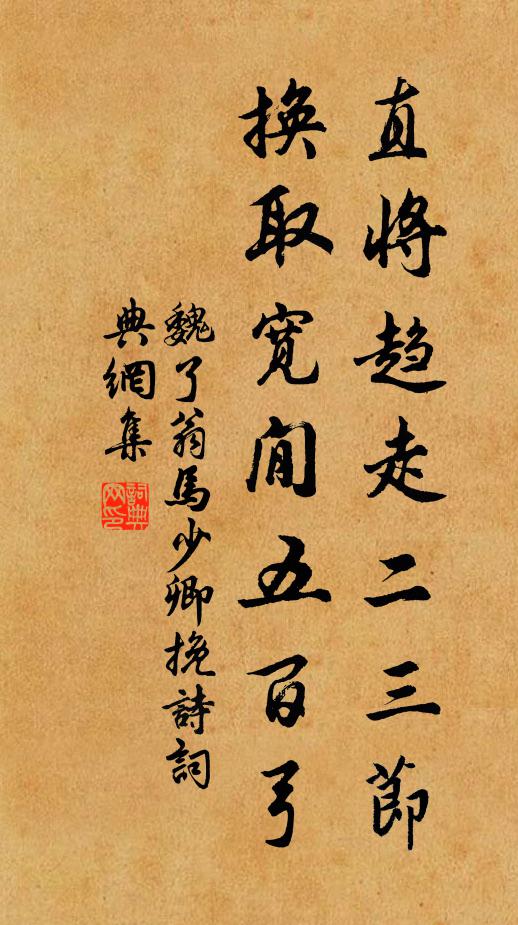 直將趨走二三節
換取寬閒五百弓
魏了翁馬少卿挽詩詞
典網集
詞典網印